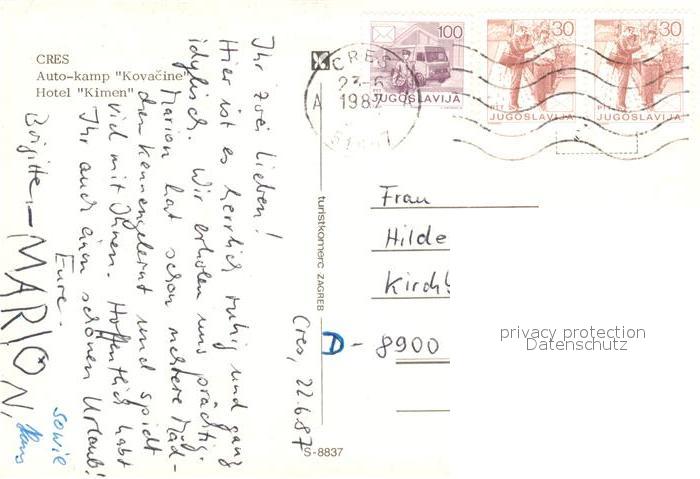 CRES
Auto-kamp "Kovačine"
Hotel "Kimen"
Cres, 22.6.87
Ihr zwei Lieben!
Hier ist es herrlich ruhig und ganz
idyllisch. Wir erholen uns prächtig.
Marion hat schon mehrere Mäd-
chen kennengelernt und spielt
viel mit Ihnen. Hoffentlich habt
Ihr auch einen schönen Urlaub!
Eure
Brigitte, – MARION,
sowie
Hans
turistkomerc ZAGREB
S-8837
100
JUGOSLAVIJA
30
PTT
JUGOSLAVIJA
30
PTT
JUGOSLAVIJA
CRES
23-6
198
Frau
Hilde
Kirch
D - 8900
privacy protection
Datenschutz